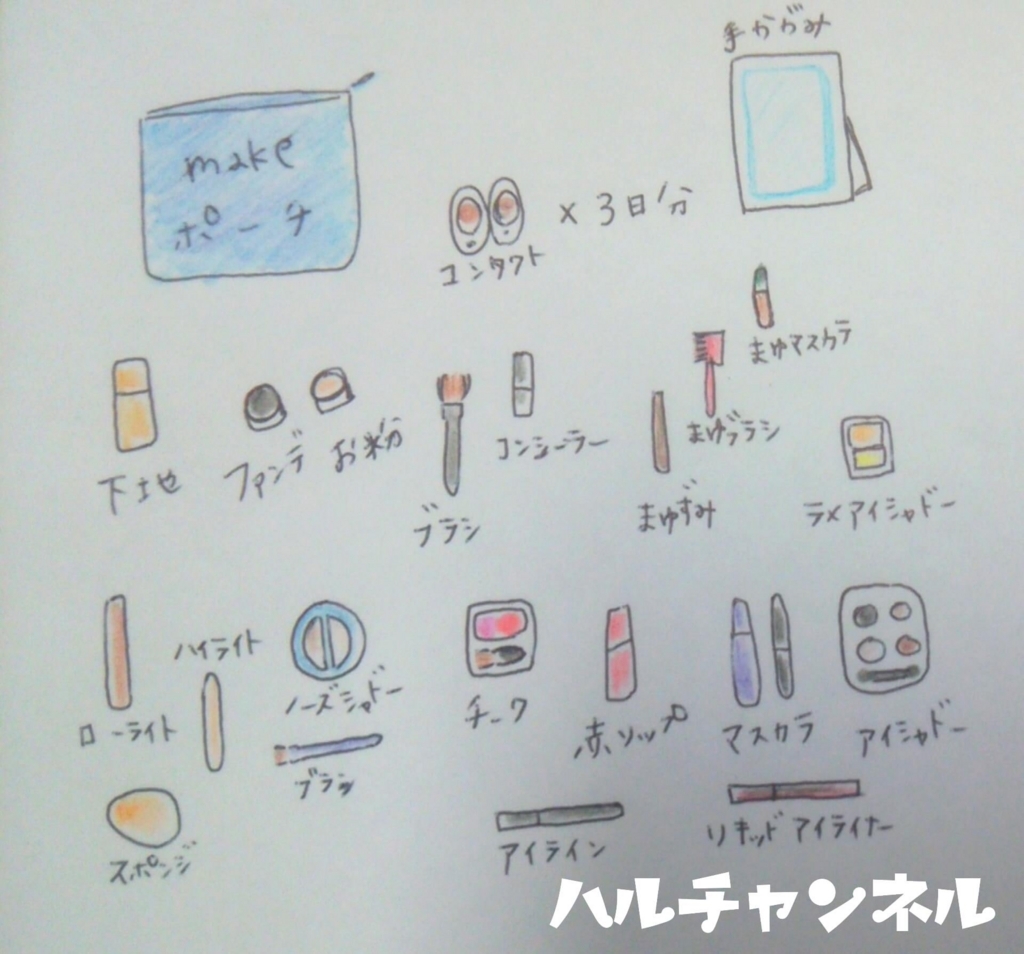 手かがみ
make
ポーチ
×3日分
コンタクト
まゆマスカラ
まゆブラシ
下地
ファンデ
お米分
コンシーラー
ブラシ
まゆずみ
ラメアイシャドー
ローライト
ハイライト
ノーズシャドー
ブラシ
チーク
赤リップ
マスカラ
アイシャドー
スポンジ
アイライン
リキッドアイライナー
ハルチャンネル